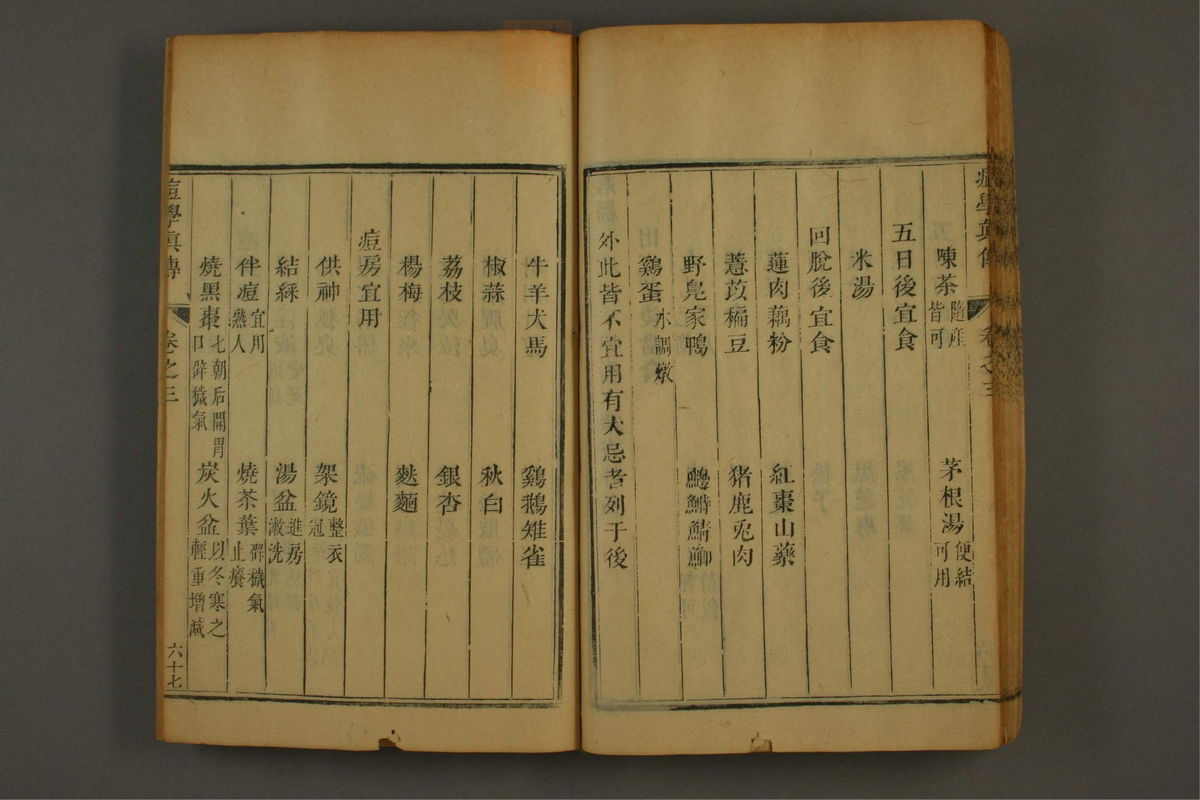 陳茶隨産皆可 茅根湯便結可用
五日後宜食
米湯
回脫後宜食
蓮肉藕粉 紅棗山藥
薏苡稨豆 猪鹿兎肉
野鳬家鴨
鷄蛋水調燉
外此皆不宜用有大忌者列于後
牛羊犬馬 鷄鵝雉雀
椒蒜 秋白
荔枝 銀杏
楊梅 麩麵
痘房宜用
供神 架鏡整衣冠
結綵 湯盆進房潄洗
伴痘宜用熟人 燒茶葉辟穢氣止癢
燒黑棗七朝后開胃口辟穢氣 炭火盆以冬寒之輕重增减
痘學真傳 卷之三 六十七